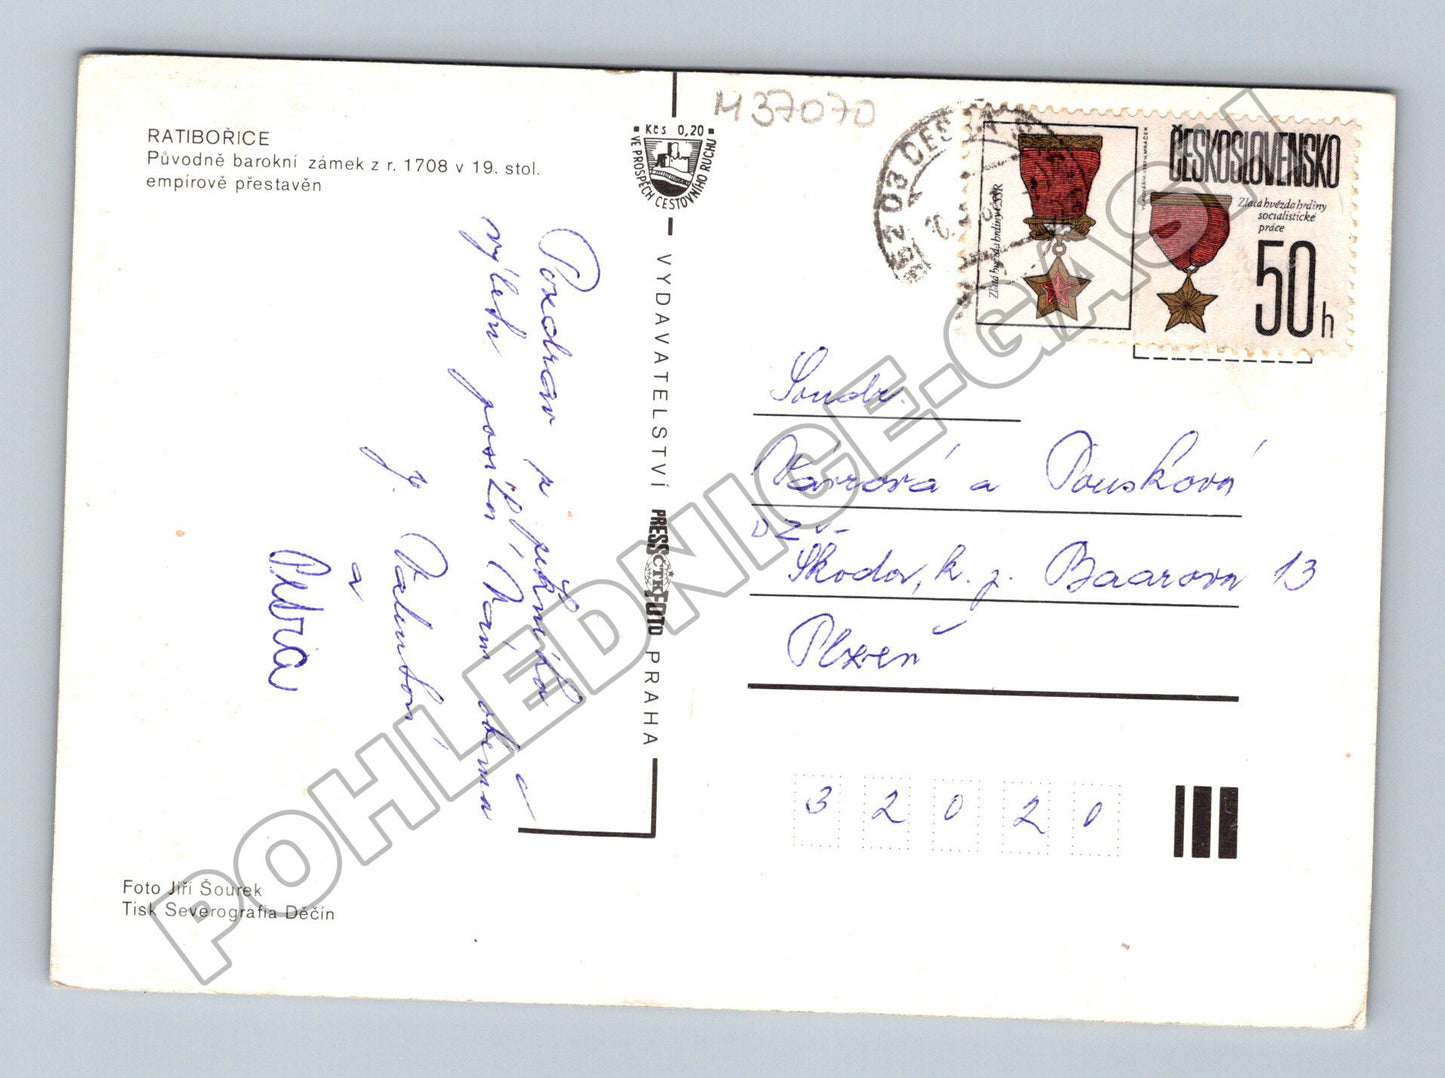 RATIBOŘICE
Původně barokní zámek z r. 1708 v 19. stol.
empírově přestavěn
M37070
Kčs 0,20
VE PROSPĚCH CESTOVNÍHO RUCHU
552 03 ČESKÁ
ČESKOSLOVENSKO
Zlatá hvězda hrdiny ČSSR
Zlatá hvězda hrdiny
socialistické
práce
50h
Pozdrav z pěkného
výletu posílá Vám oběma
J.
a
Petra
VYDAVATELSTVÍ PRESSFOTO PRAHA
ČTK
Soudr.
Kárrová a Pousková
DZŠ
Škoda, k. p. Baarova 13
Plzeň
32020
Foto Jiří Šourek
Tisk Severografia Děčín
POHLEDNICE-GASH